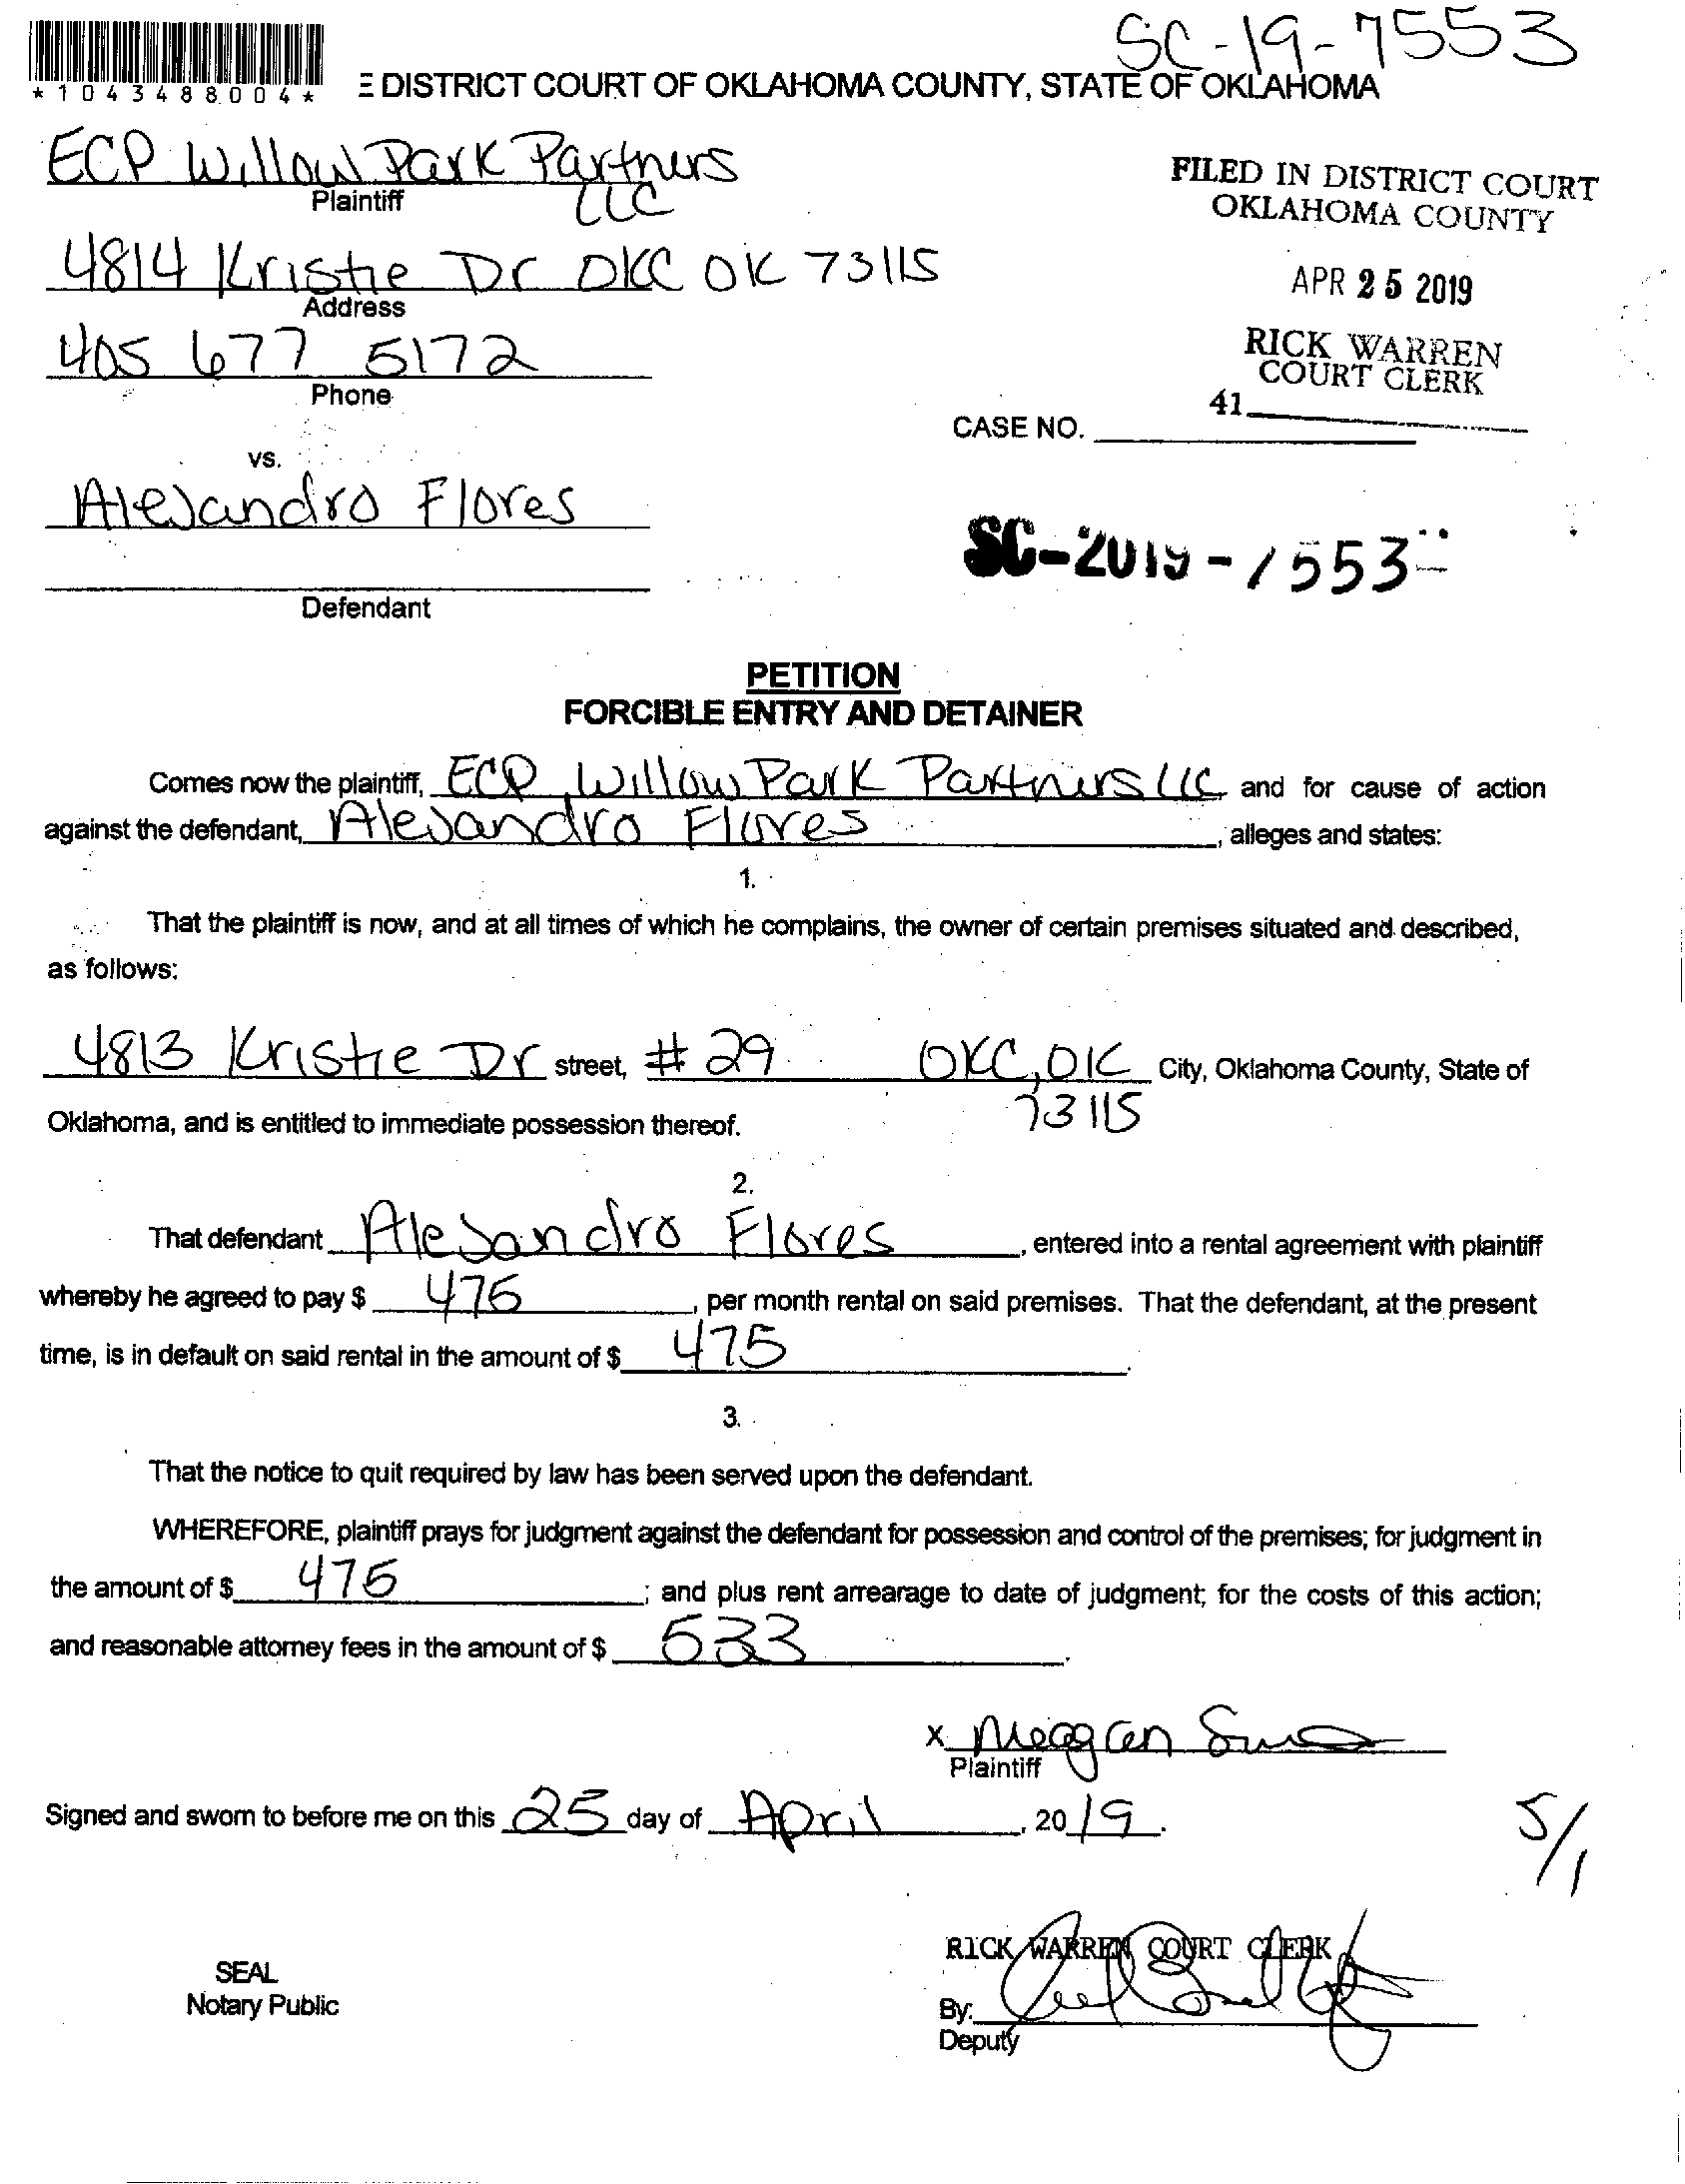 SC-19-7553
*1043488004*
E DISTRICT COURT OF OKLAHOMA COUNTY, STATE OF OKLAHOMA
ECP Willow Park Partners
LLC
Plaintiff
4814 Kristie Dr OKC OK 73115
Address
405 677 5172
Phone
FILED IN DISTRICT COURT
OKLAHOMA COUNTY
APR 25 2019
RICK WARREN
COURT CLERK
41
CASE NO.
vs.
Alejandro Flores
Defendant
SC-2019-7553
PETITION
FORCIBLE ENTRY AND DETAINER
Comes now the plaintiff, ECP Willow Park Partners LLC and for cause of action
against the defendant, Alejandro Flores, alleges and states:
1.
That the plaintiff is now, and at all times of which he complains, the owner of certain premises situated and described,
as follows:
4813 Kristie Dr street, # 29 OKC, OK City, Oklahoma County, State of
73115
Oklahoma, and is entitled to immediate possession thereof.
2.
That defendant Alejandro Flores, entered into a rental agreement with plaintiff
whereby he agreed to pay $ 475, per month rental on said premises. That the defendant, at the present
time, is in default on said rental in the amount of $ 475.
3.
That the notice to quit required by law has been served upon the defendant.
WHEREFORE, plaintiff prays for judgment against the defendant for possession and control of the premises; for judgment in
the amount of $ 475; and plus rent arrearage to date of judgment; for the costs of this action;
and reasonable attorney fees in the amount of $ 533.
x Meaggan
Plaintiff
Signed and sworn to before me on this 25 day of April, 2019.
5/1
RICK WARREN COURT CLERK
SEAL
Notary Public
By:
Deputy